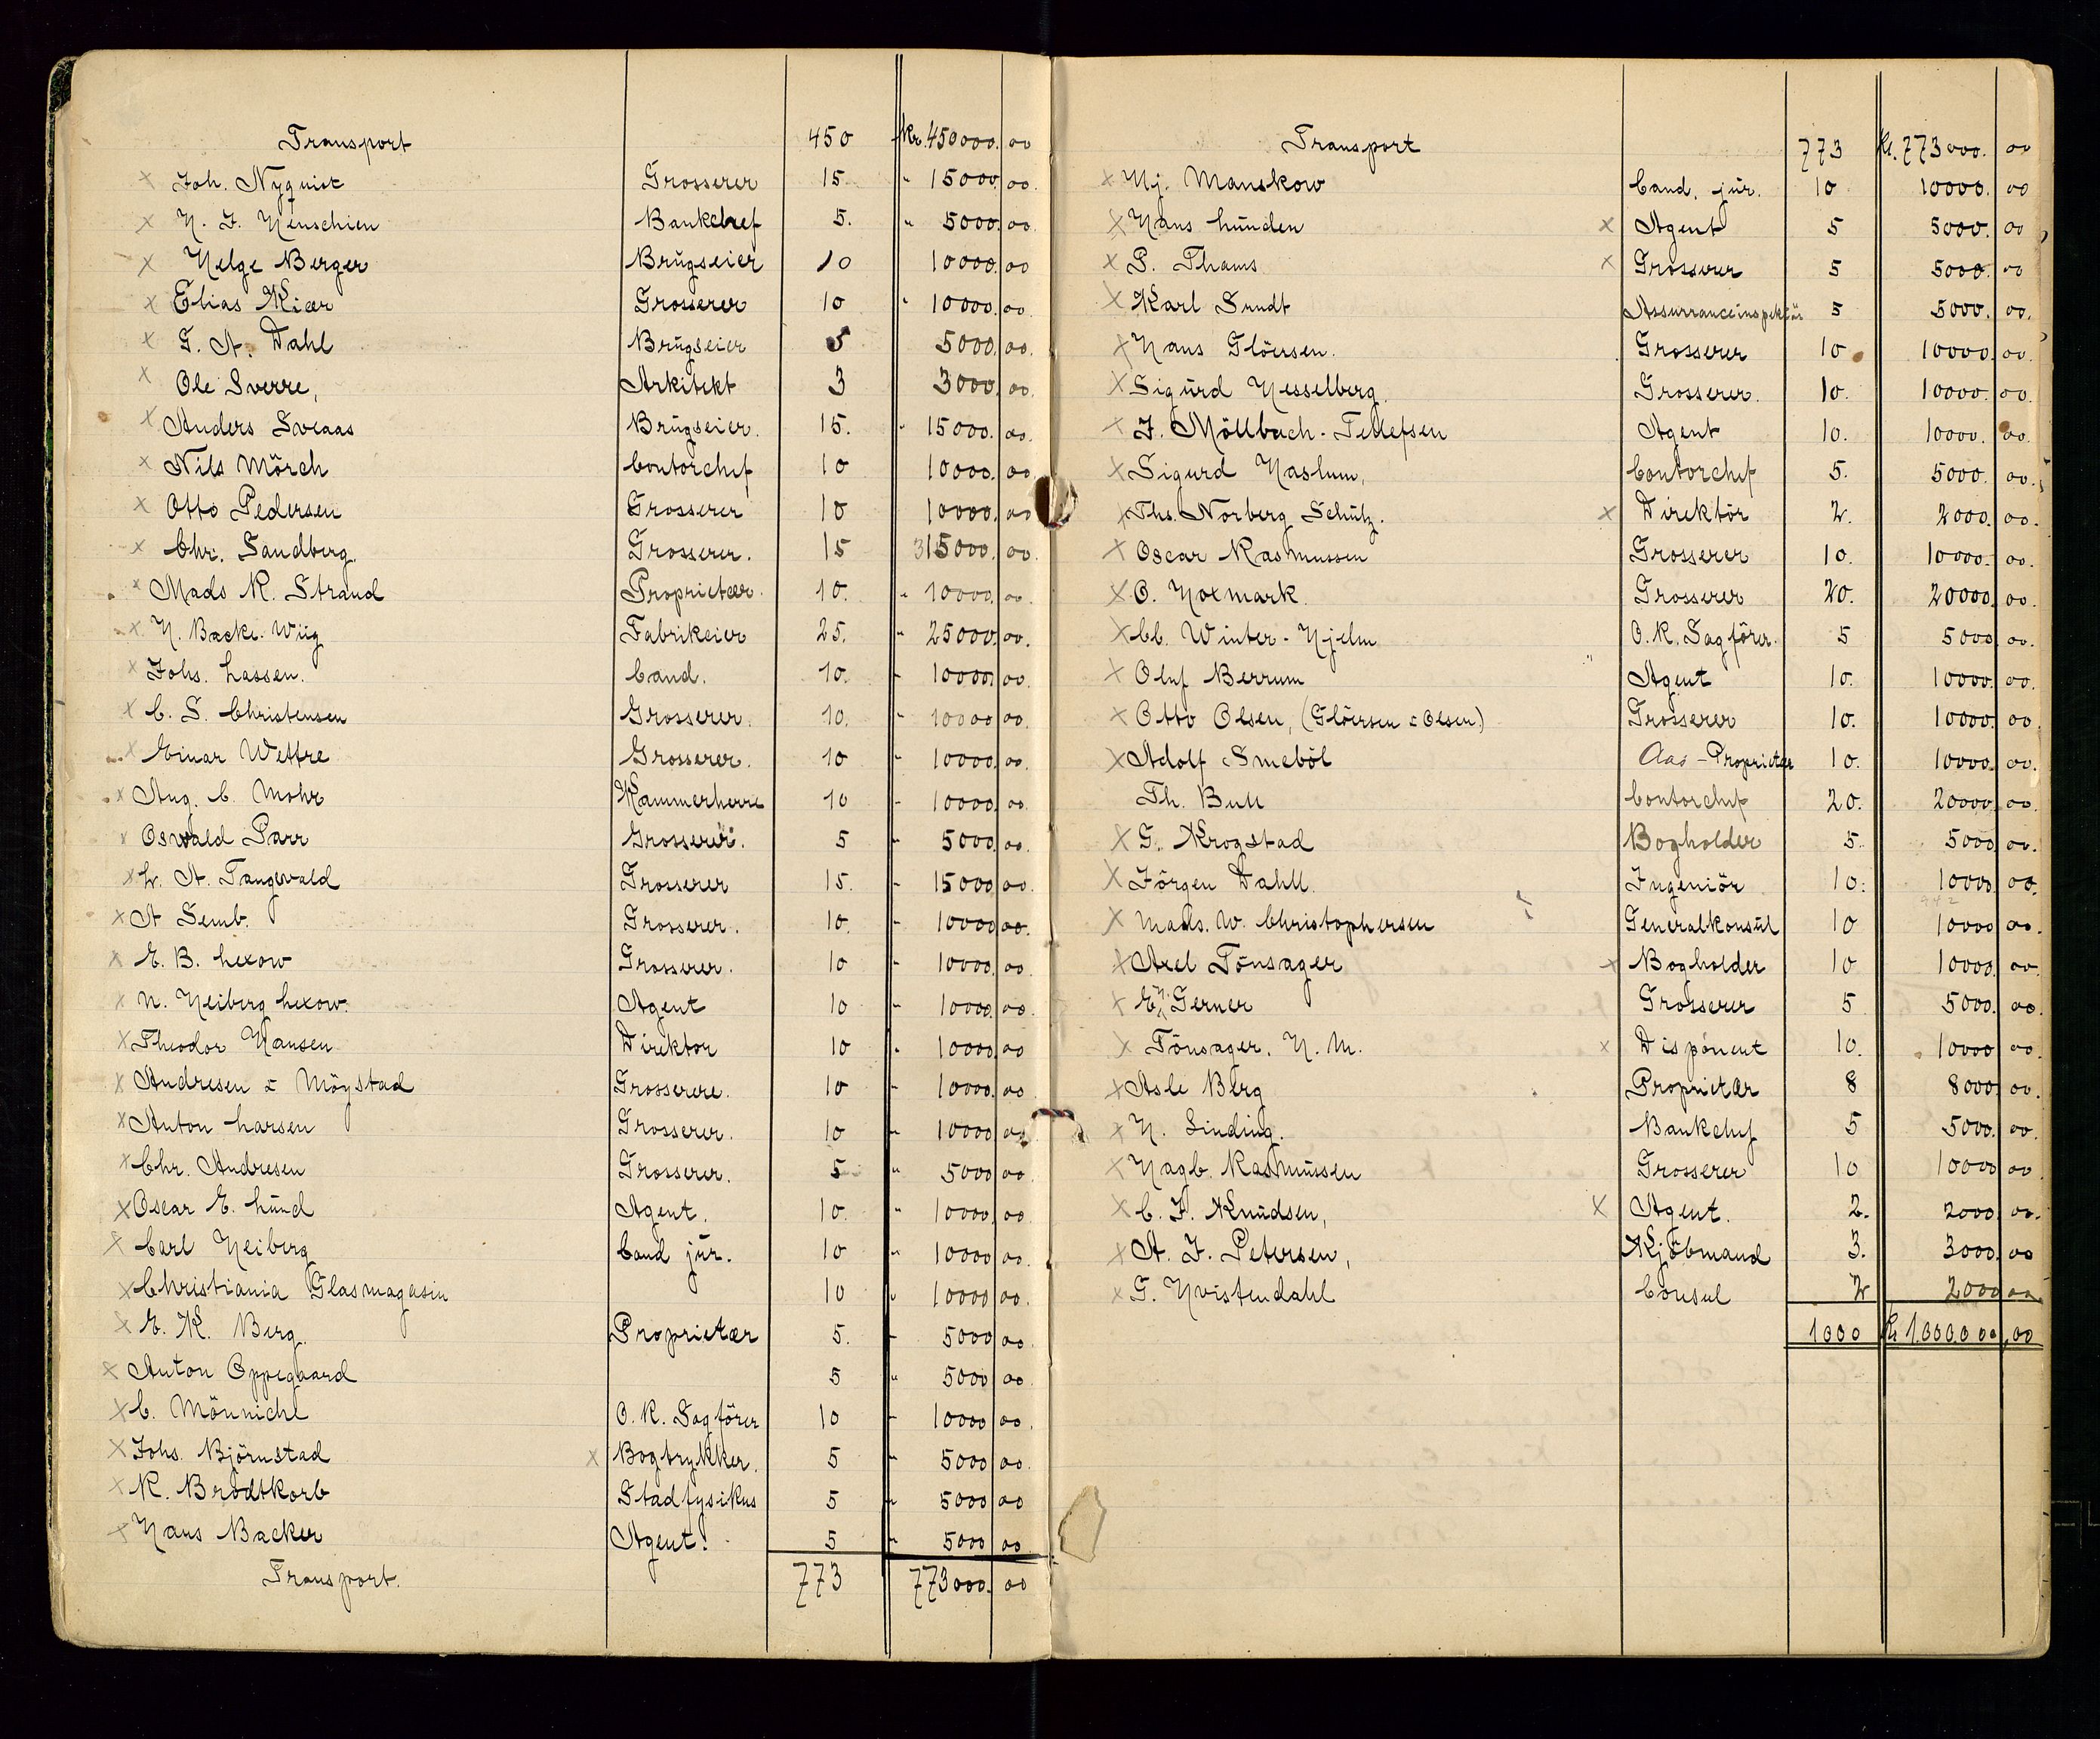 Transport 450 Kr. 450000. 00
x Joh. Nyquist Grosserer 15 " 15000 00.
x H. J. Henschien Bankchef 5. " 5000. 00
x Helge Berger Brŭgseier 10 10000. 00
x Elias Kiær Grosserer 10 " 10000. 00.
x G. A. Dahl Brŭgseier 5 5000. 00.
x Ole Sverre, Arkitekt 3 3000. 00.
x Anders Sveaas Brŭgseier. 15. " 15000. 00.
x Nils Mörch Contorchef 10 10000. 00
x Otto Pedersen Grosserer 10 10000. 00
x Chr. Sandberg. Grosserer. 15 315000. 00.
x Mads R. Strand Proprietær. 10. " 10000. 00.
x H. Backe-Wiig Fabrikeier 25. " 25000 00.
x Johs. Lassen. Cand. 10. - 10000. 00.
x C. S. Christensen Grosserer. 10. - 10000 00.
x Einar Wettre Grosserer. 10 - 10000. 00.
x Aug. C. Mohr Kammerherre 10 - 10000. 00.
x Oswald Parr Grosserer. 5 - 5000. 00.
x L. A. Tangevald Grosserer 15. - 15000 00.
x A Semb. Grosserer. 10. - 10000 00.
x E. B. Lexow Grosserer. 10 - 10000. 00.
x N. Heiberg Lexow. Agent 10 - 10000. 00.
x Theodor Hansen Direktor 10 - 10000. 00
x Andresen & Möystad Grosserere. 10 - 10000. 00
x Anton Larsen Grosserer. 10 - 10000 00
x Chr. Andresen Grosserer. 5 " 5000 00
x Oscar E. Lŭnd Agent. 10. " 10000. 00
x Carl Heiberg Cand jŭr. 10 " 10000 00.
x Christiania Glasmagasin 10 " 10000 00.
x E. K. Berg. Proprietær 5. - 5000 00
x Anton Oppegaard 5 " 5000 00
x C. Mönnichl O. R. Sagförer 10 - 10000 00.
x Johs. Björnstad x Bogtrykker. 5 - 5000 00.
x R. Brodtkorb Stadfysikus 5 - 5000 00
x Hans Backer Agent. 5 - 5000 00
Transport. 773 773000. 00
Transport 773 Kr. 773000. 00
x Hj. Manskow Cand. jŭr. 10 10000. 00
x Hans Lŭnden x Agent 5 5000. 00
x P. Thams x Grosserer 5 5000. 00
x Karl Sundt Assurranceinspektör 5 5000. 00.
x Hans Glöersen. Grosserer 10 10000. 00.
x Sigŭrd Hesselberg. Grosserer. 10. 10000. 00.
x J. Möllbach-Tellefsen Agent 10. 10000. 00.
x Sigurd Haslum, Contorchef 5. 5000. 00.
x Ths. Norberg Schŭlz. x Direktör 2. 2000. 00.
x Oscar Rasmussen Grosserer 10. 10000. 00.
x O. Hoxmark. Grosserer 20. 20000. 00.
x Cl. Winter-Hjelm O. R. Sagförer. 5 5000 00.
x Oluf Berrum Agent 10. 10000. 00.
x Otto Olsen, (Glöersen & Olsen.) Grosserer 10. 10000. 00.
x Adolf Smeböl Aas - Proprietær 10. 10000. 00.
Th. Bull Contorchef 20. 20000. 00.
x G. Krogstad Bogholder 5. 5000 00.
x Jörgen Dahll. Ingeniör 10. 10000 00.
x Mads. W. Christophersen Generalkonsŭl 10 10000 00.
x Axel Tönsager x Bogholder 10 10000. 00.
x E. H. Gerner Grosserer 5 5000. 00.
x Tönsager, H. M. x Disponent 10. 10000 00.
x Asle Berg Proprietær 8 8000 00.
x H. Sinding. Bankchef 5 5000. 00.
x Hagb. Rasmŭssen Grosserer 10 10000 00
x C. F. Knŭdsen, x Agent. 2. 2000. 00.
x A. J. Petersen, Kjöbmand 3. 3000. 00
x G. Hvistendahl Consul 2 2000 00
1000 Kr 1.000.000,00